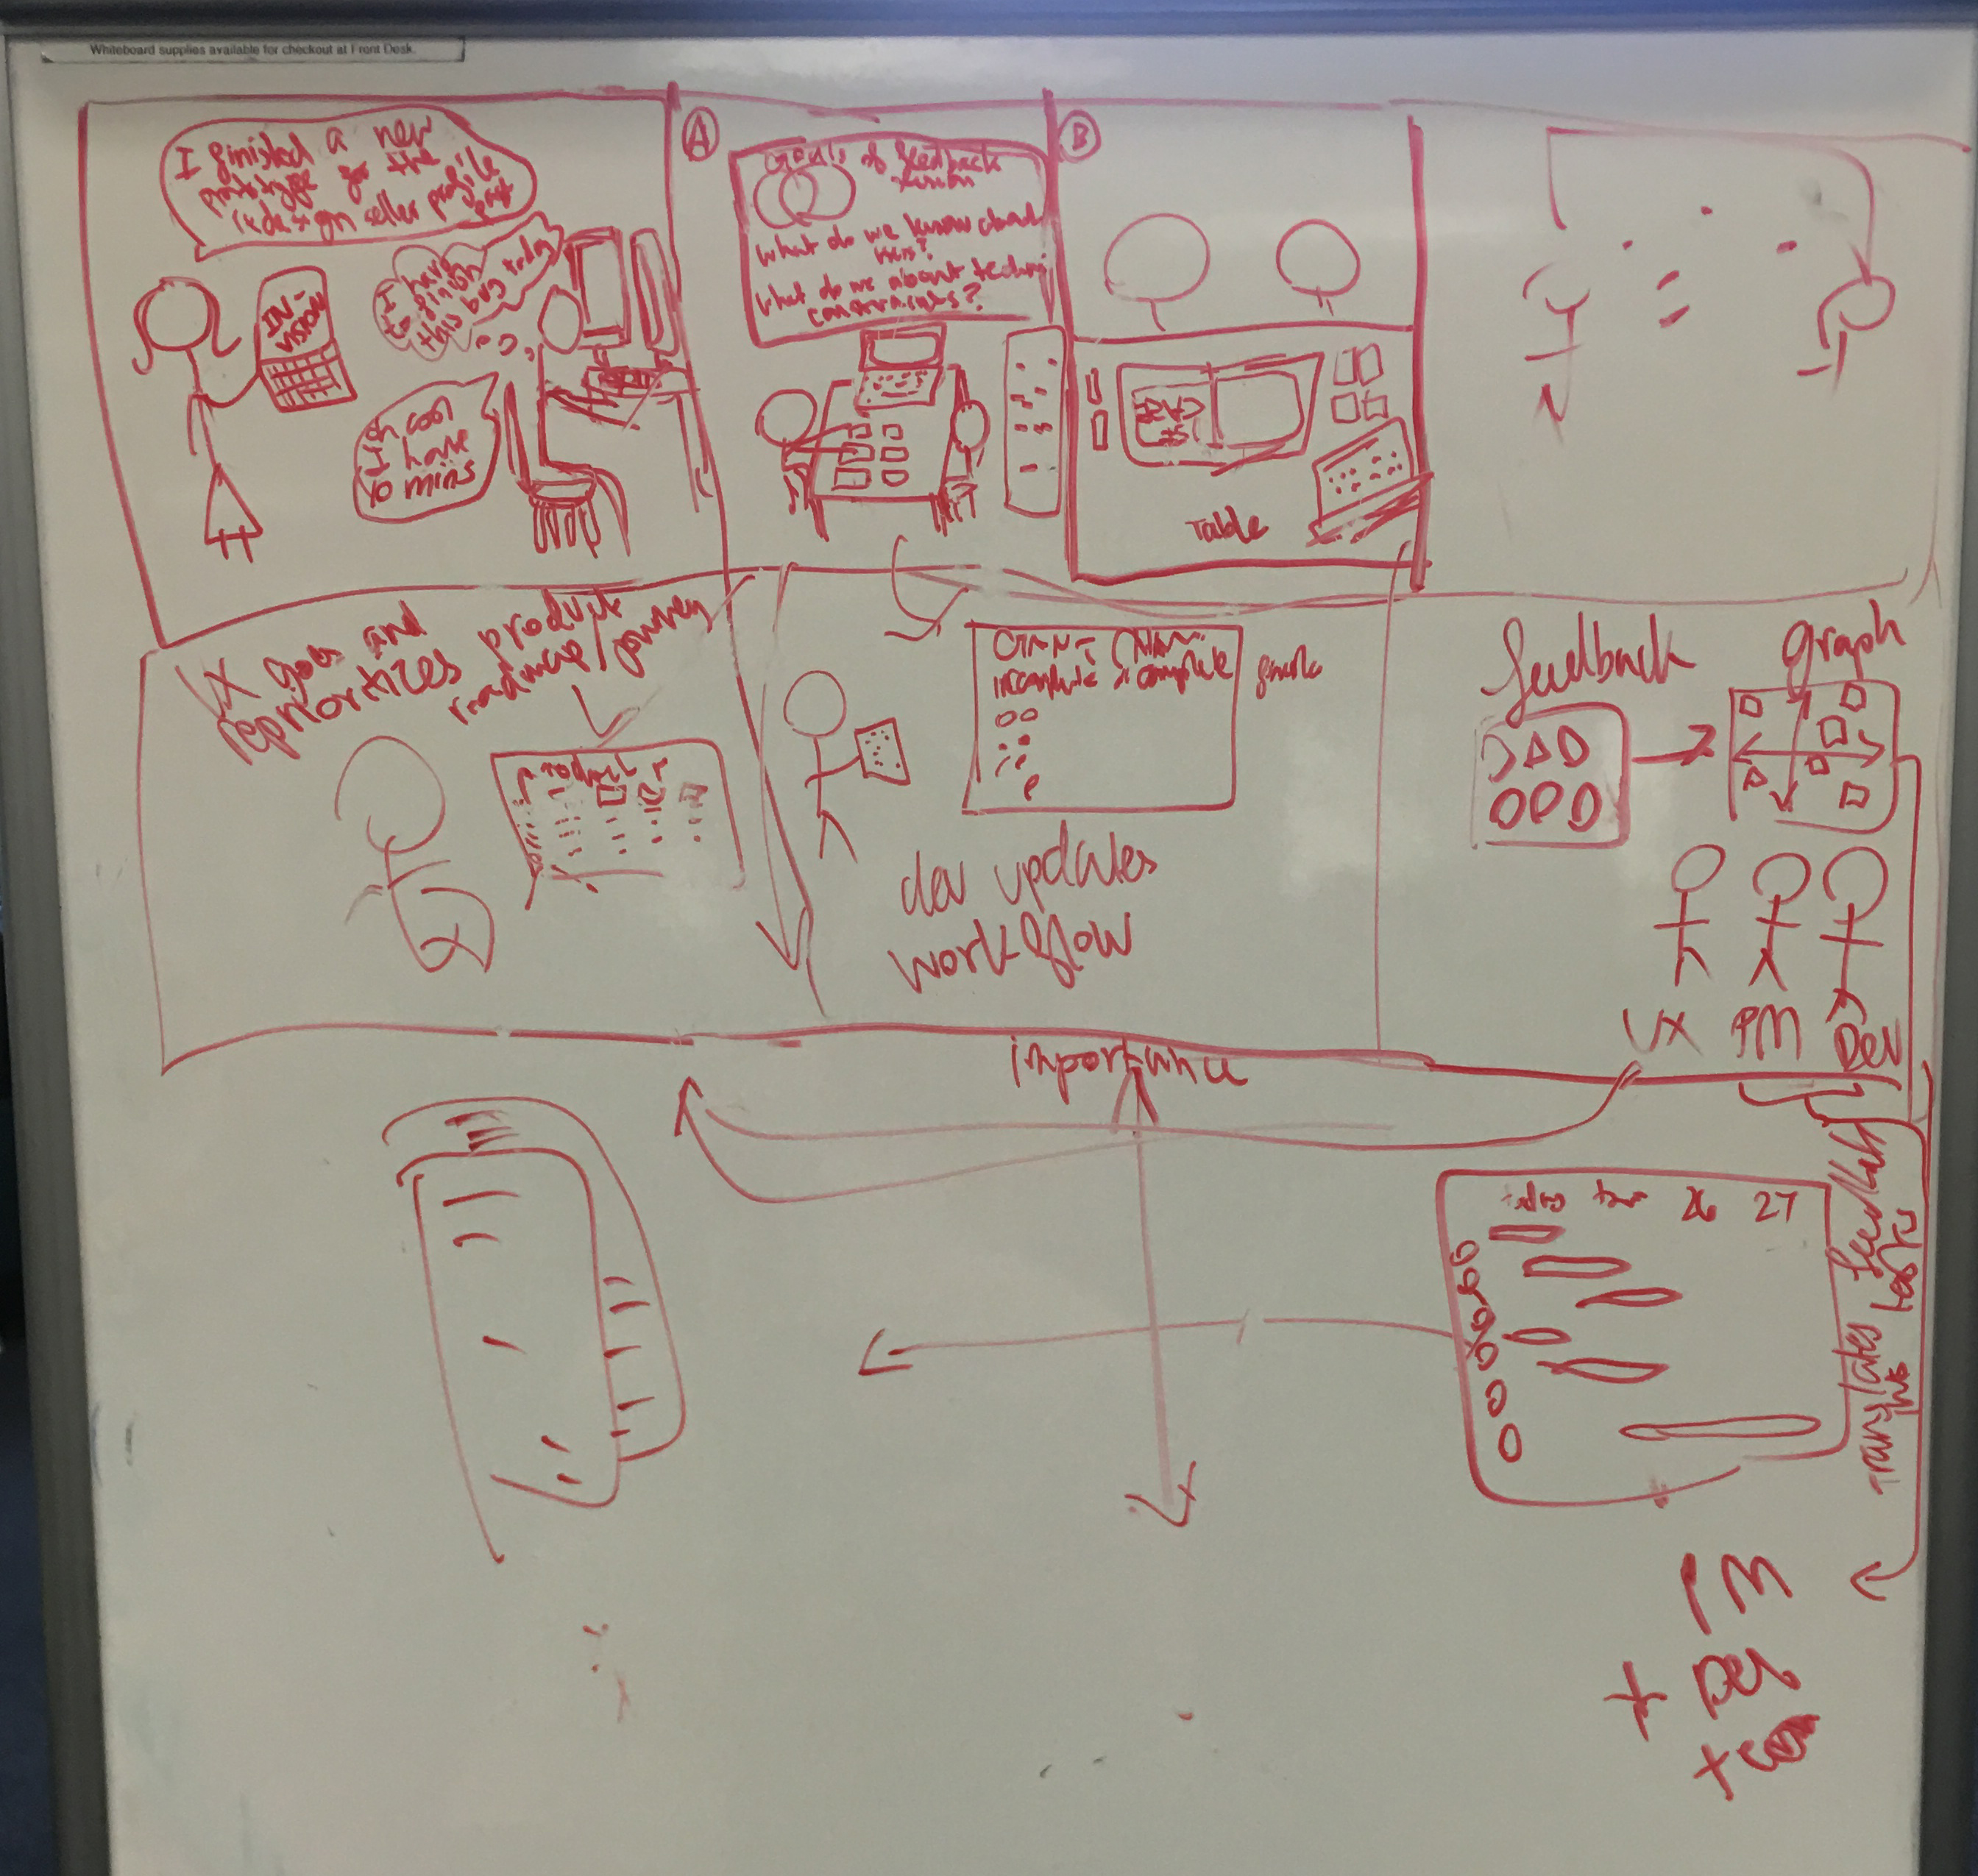 Whiteboard supplies available for checkout at Front Desk.
I finished a new
prototype for the
redesign seller profile
IN-
VISION
I have
to finish
this bug today
oh cool
I have
10 mins
A
Goals of feedback
session
What do we know about
What do we about
constraints?
B
Table
UX goes and
reprioritizes product
roadmap/journey
product
incomplete complete
dev updates
workflow
feedback
graph
UX PM DEV
importance
today 26 27
translates feedback
PM
+ Dev
+